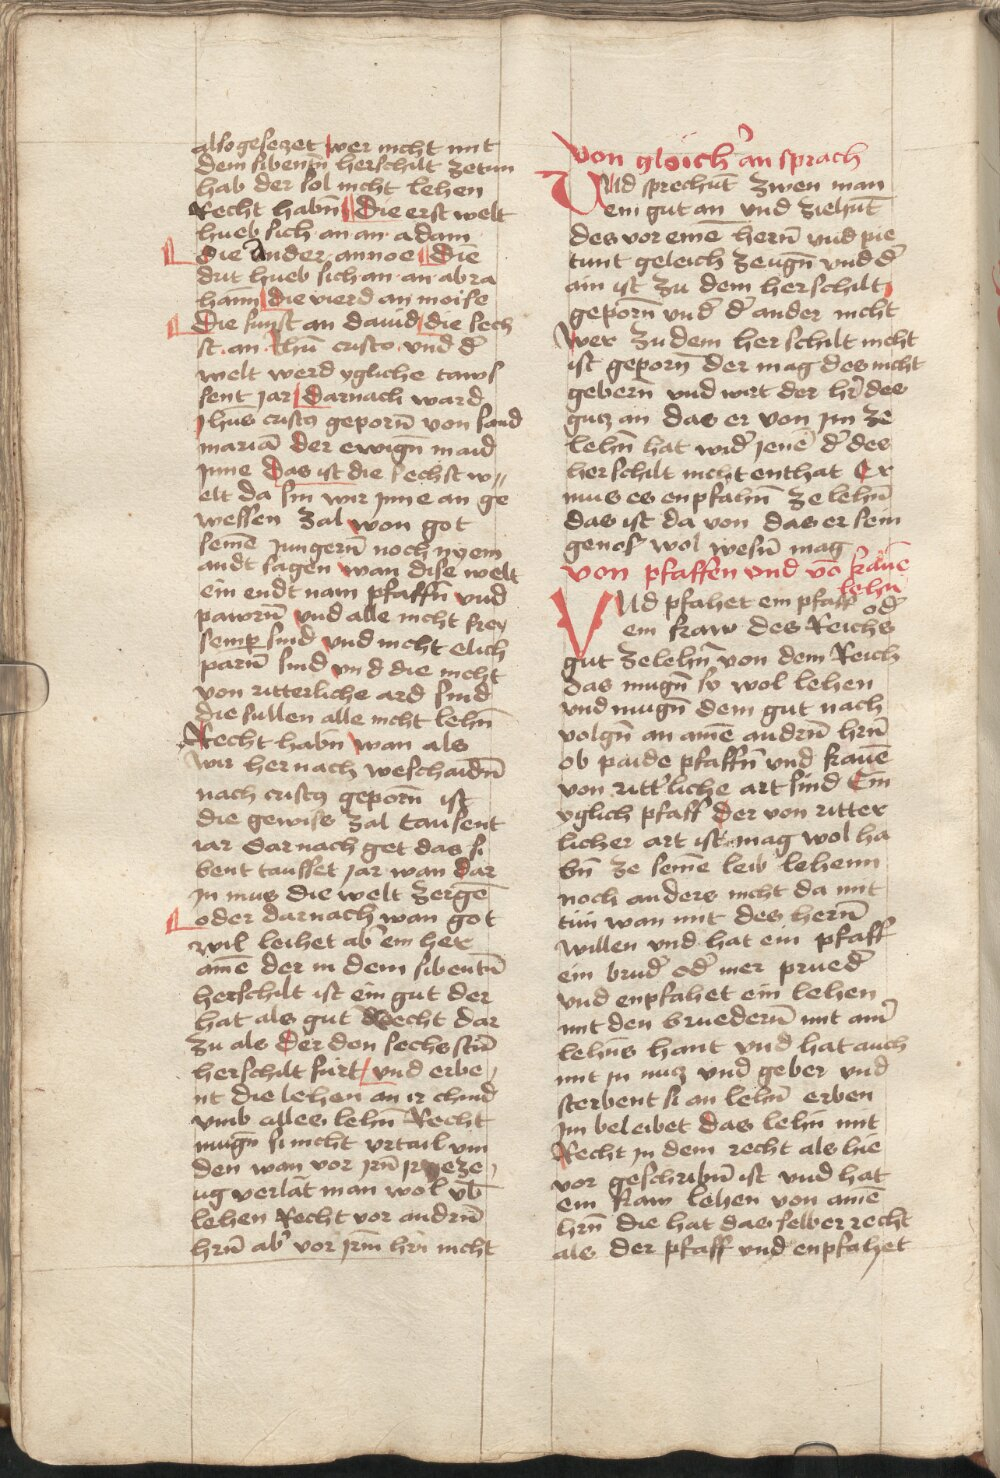 also gesetzet wer nicht mit
dem sibentn̄ herschilt ze tun
hab der sol nicht lehen
Recht habn̄ Die erst welt
hueb sich an an adam
die Ander an noe die
drit hueb sich an an abra
ham̄ die vierd an moise
Die funft an dauid die sech
st an Jhū cristo vnd d̄
welt werd ygliche taws
sent jar Darnach ward
Jhūs cristꝰ geporn̄ von sand
mariā der ewign̄ maid
Jnne Das ist die sechst w„
elt da sin wir jnne an ge
wessen zal won got
semē jungern̄ noch nyem
andt sagen wan dise welt
ein endt nam pfaffn̄ vnd
pawrn̄ vnd alle nicht frey
semp sind vnd nicht elich
parn̄ sind vnd die nicht
von ritterliche ard sind
die sullen alle nicht lehn̄
Recht habn̄ wan als
wir her nach weschaidn̄
nach cristꝰ geporn̄ ist
die gewise zal tausent
iar dar nach get das si
bent tausset jar wan dar
jn mus die welt zergē
oder darnach wan got
wil leihet ab̓ ein her
amē der in dem sibentn̄
herschilt ist ein gut der
hat als gut Recht dar
zu als Der den sechsstn̄
herschilt fürt vnd erbe„
nt die lehen an ir chind
vmb alles lehn̄ Recht
mugn̄ si nicht vrtail vin
den wan vor irn̄ geze„
ug verlāt man wol vb̄
lehen Recht vor andrn̄
hrn̄ ab̓ vor jrm̄ hrn̄ nicht
von gloich an sprach
Vnd sprechnt̄ zwen man
ein gut an vnd ziehnt̄
des vor einē hern̄ vnd pie
tunt geleich zeugn̄ vnd d̓
ain ist zu dem herschilt
geporn̄ vnd d̓ ander nicht
Wer zu dem her schilt nicht
ist geporn̄ der mag des nicht
gebern̄ vnd wirt der hr̄ des
gutz an das er von im ze
lehn̄ hat wid̓ jenē d̓ des
her schilt nicht enthat Er
mus es enpfahn̄ ze lehn̄
das ist da von das er sein
genos wol wesn̄ mag
von pfaffen vnd vō frauē
lehn̄
Vnd pfahet ein pfaff od̓
ein fraw des Reichs
gut ze lehn̄ von dem Reich
das mugn̄ so wol lehen
vnd mugn̄ dem gut nach
volgn̄ an amē andrn̄ hrn̄
ob paide pfaffn̄ vnd frauē
von ritt̓liche art sind Ein
yglich pfaff der von ritter
licher art ist mag wol ha
bn̄ ze semē leib lehenn
noch anders nicht da mit
tün wan mit des hern̄
willen vnd hat ein pfaff
ein brud̓ od̓ mer prued̓
vnd enpfahet ein lehen
mit den bruedern̄ mit ain̓
lehn̄s hant vnd hat auch
mit jn nutz vnd geber vnd
sterbent si an lehn̄ erben
jm beleibet das lehn̄ mit
Recht jn dem recht als hie
vor geschribn̄ ist vnd hat
ein fraw lehen von amē
hrn̄ die hat das selber recht
als der pfaff vnd enpfahet